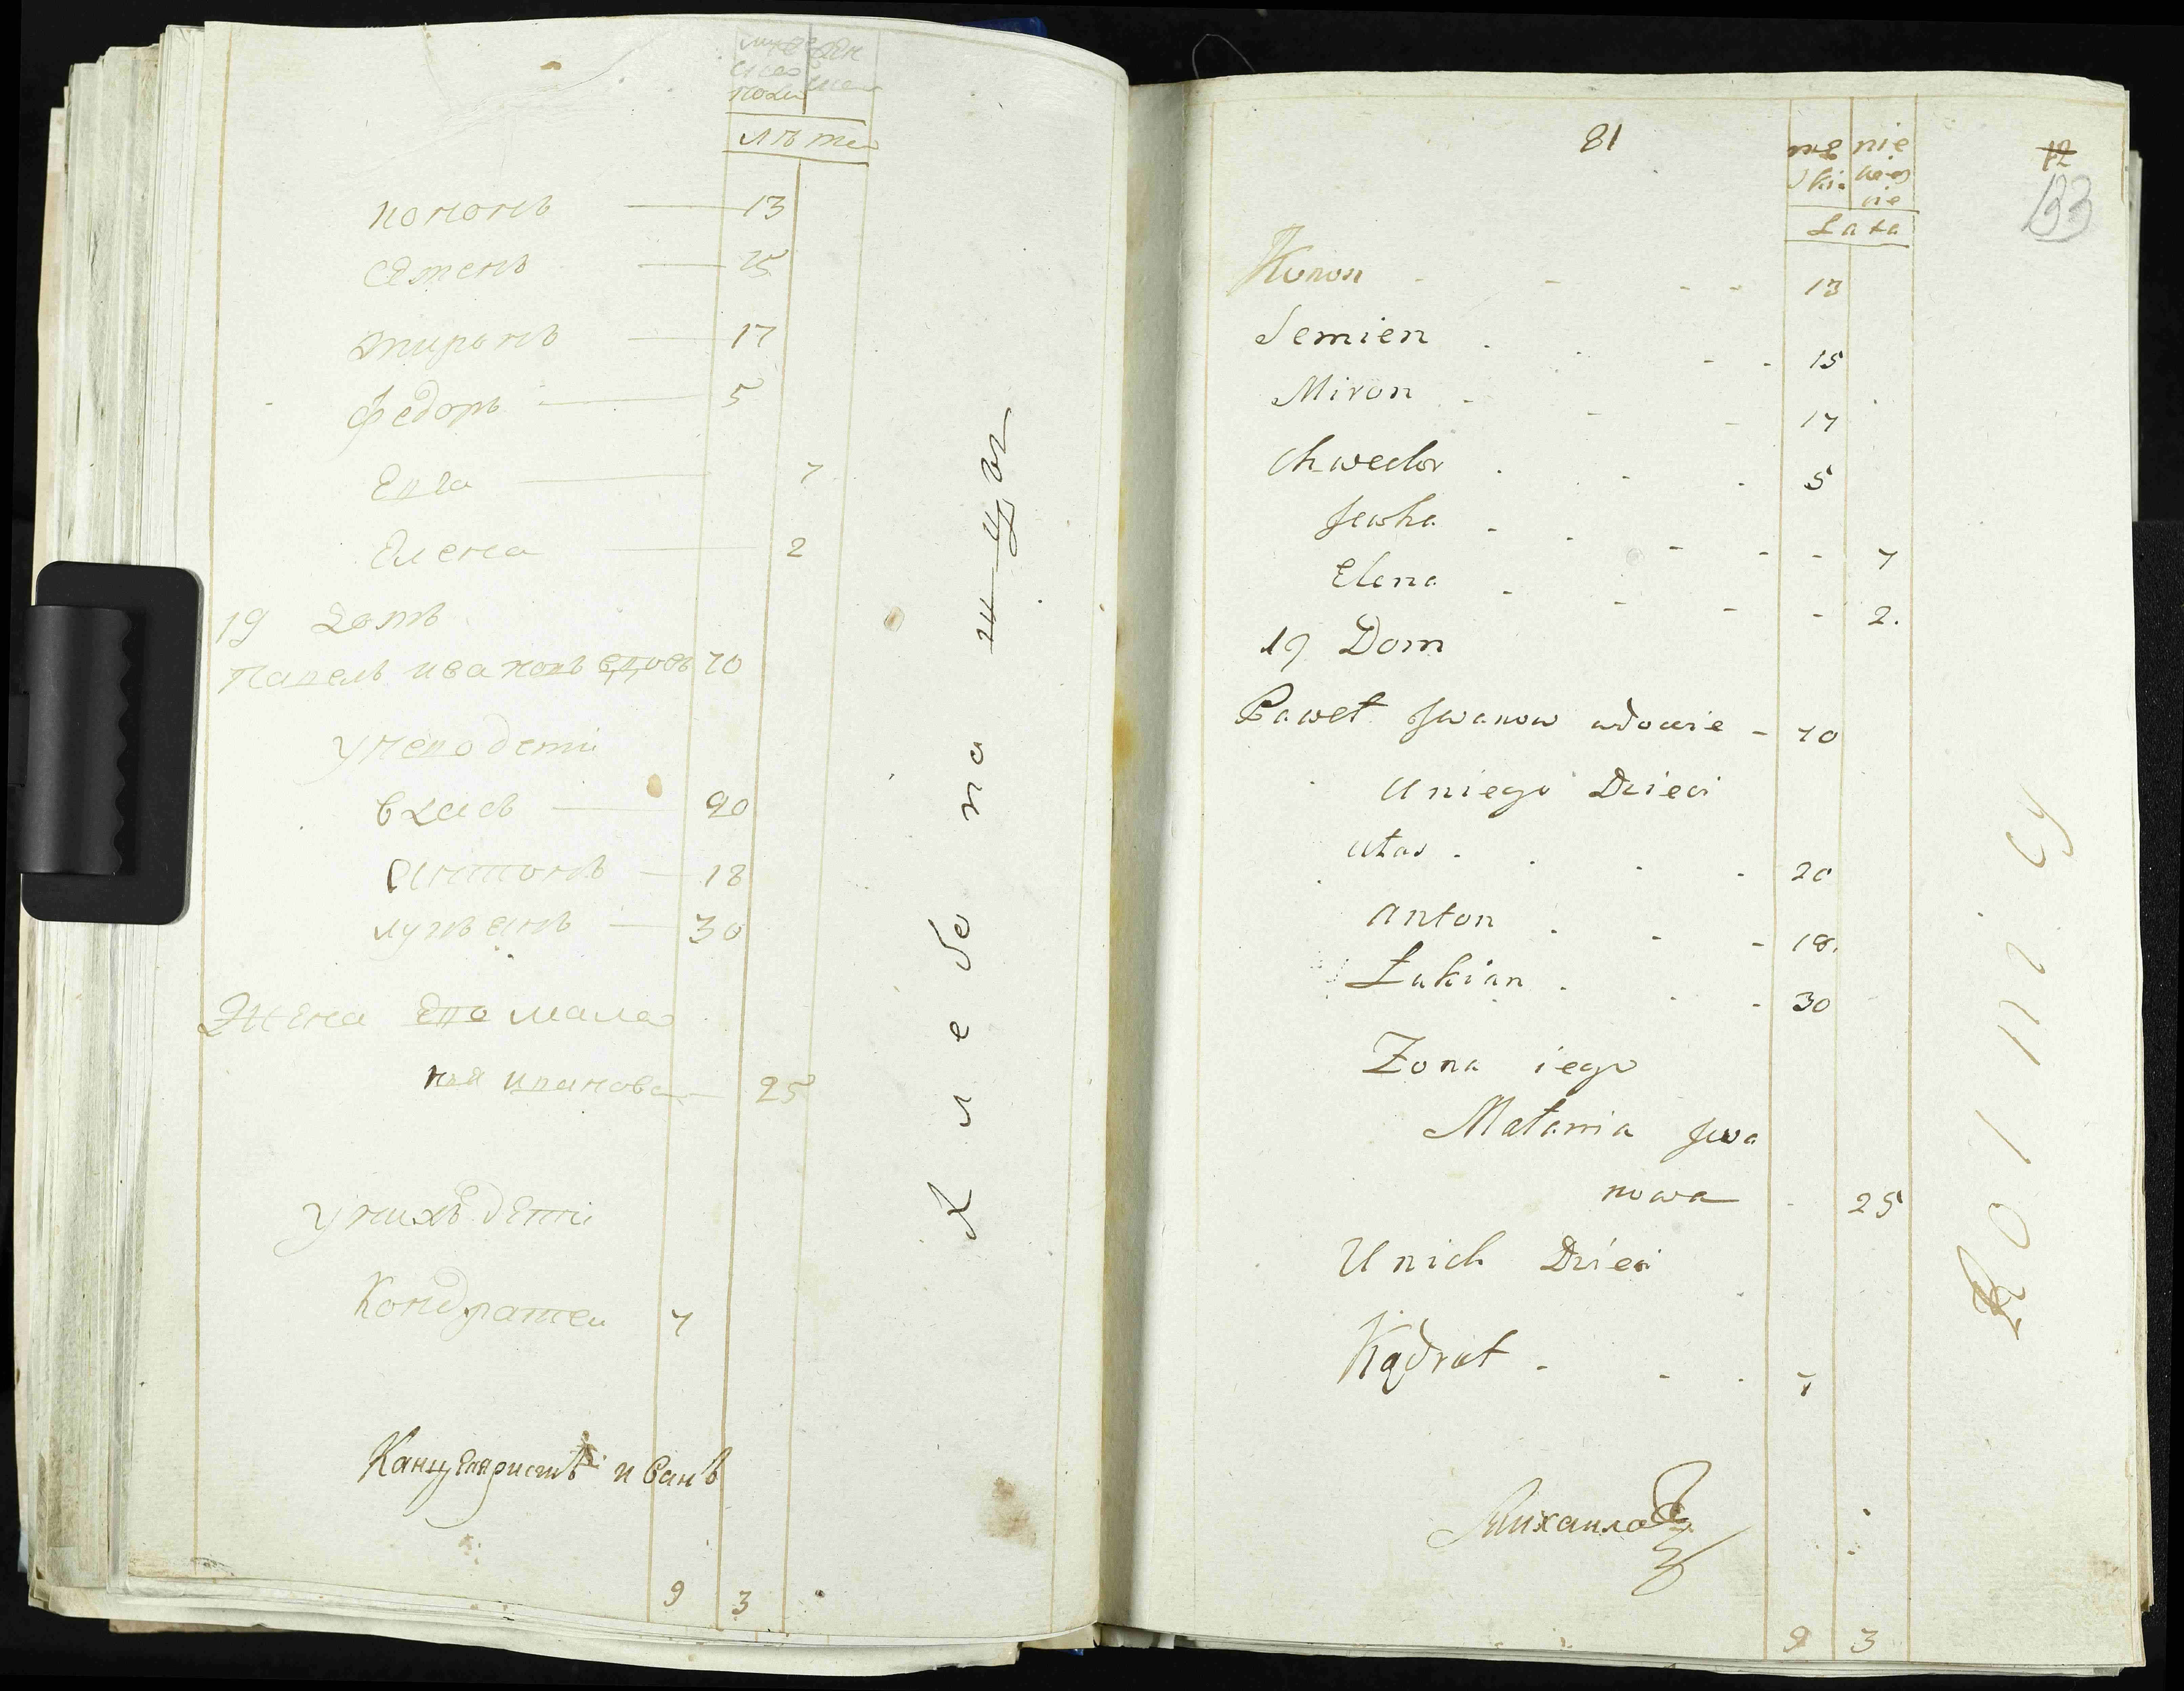 лѣта
кононъ 13
Семенъ 15
миронъ 17
федоръ 5
Евга 7
Елена 2
19 домъ
Павелъ ивановъ вдовъ 70
у него дети
влась 20
антонъ 18
лукѣянъ 30
жена его мала
нья иванова 25
у нихъ дети
Кондратеи 7
Канцеляристъ иванъ
9 3
Клебопа
81
12
133
mę nie
ski wieś
nie
Lata
Konon 13
Semien 15
Miron 17
Chwedor 5
Jewha 7
Elena 2.
19 Dom
Paweł Jwanow wdowie 70
U niego Dzieci
włas 20
anton 18.
Łukian 30
Zona iego
Małania Jwa
nowa 25
U nich Dzieci
Kądrat 7
Михаила
9 3
Rolnicy